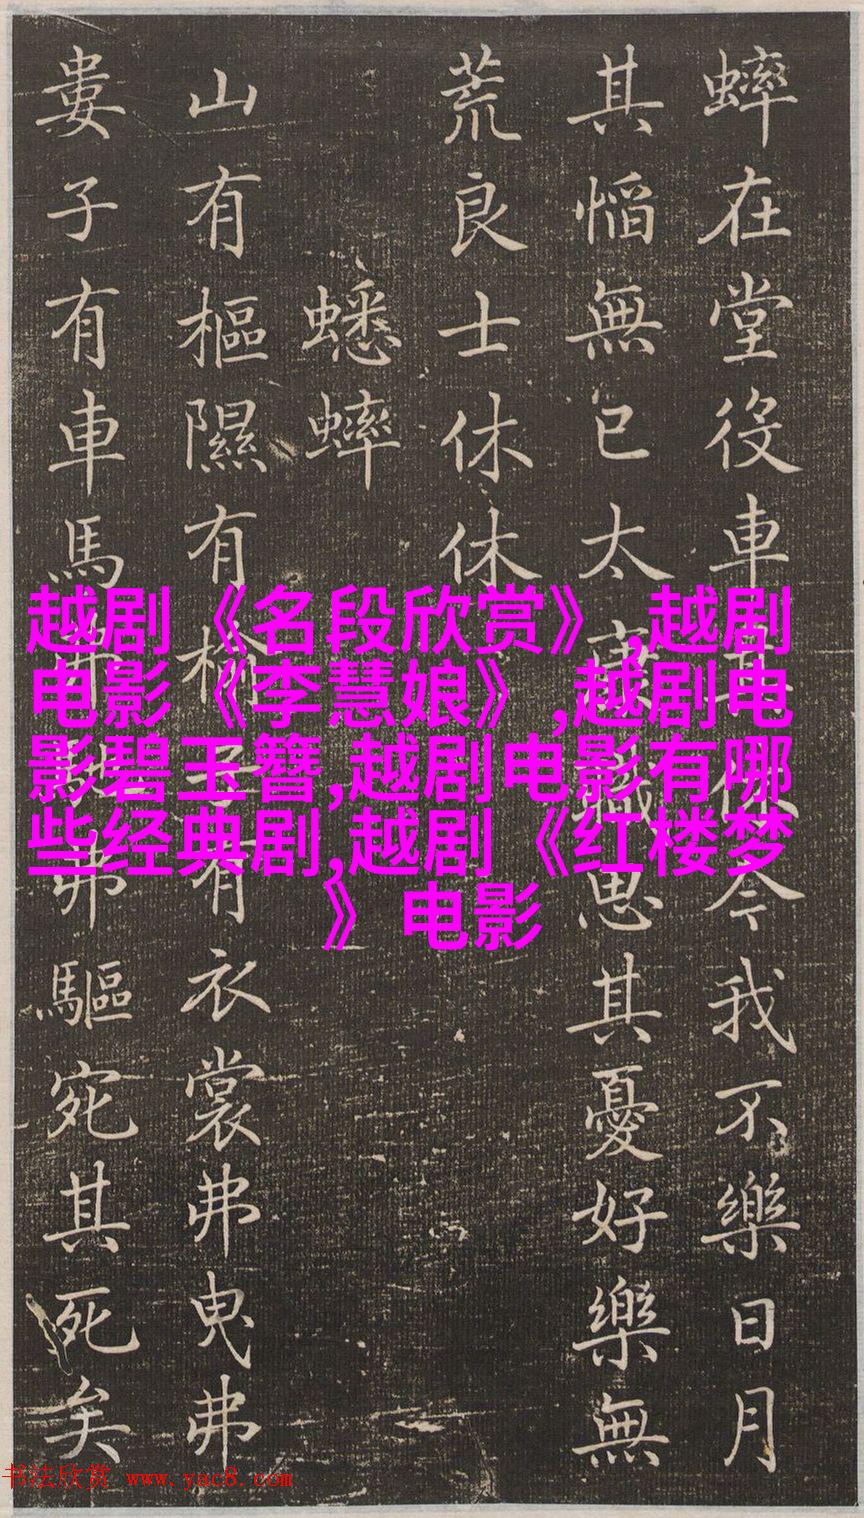 蟀在堂役車其休今我不樂日月
其慆無已太康職思其憂好樂無
荒良士休休
蟋蟀
山有樞隰有榆子有衣裳弗曳弗
婁子有車馬弗馳弗驅宛其死矣
越剧《名段欣赏》,越剧
电影《李慧娘》,越剧电
影碧玉簪,越剧电影有哪
些经典剧,越剧《红楼梦
》电影
书法欣赏 www.yac8.com